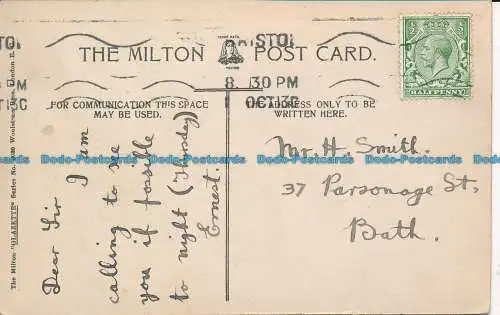 THE MILTON POST CARD.
BRISTOL
8. 30 PM
OCT 13
FOR COMMUNICATION THIS SPACE
MAY BE USED.
THE ADDRESS ONLY TO BE
WRITTEN HERE.
HALFPENNY
Mr. H. Smith.
37 Parsonage St,
Bath.
Dear Sir I am
calling to see
you if possible
to night (Thursday)
Ernest.
The Milton "GLAZETTE" Series No.
London E.
Dodo-Postcards Dodo-Postcards Dodo-Postcards Dodo-Postcards Dodo-Postcards